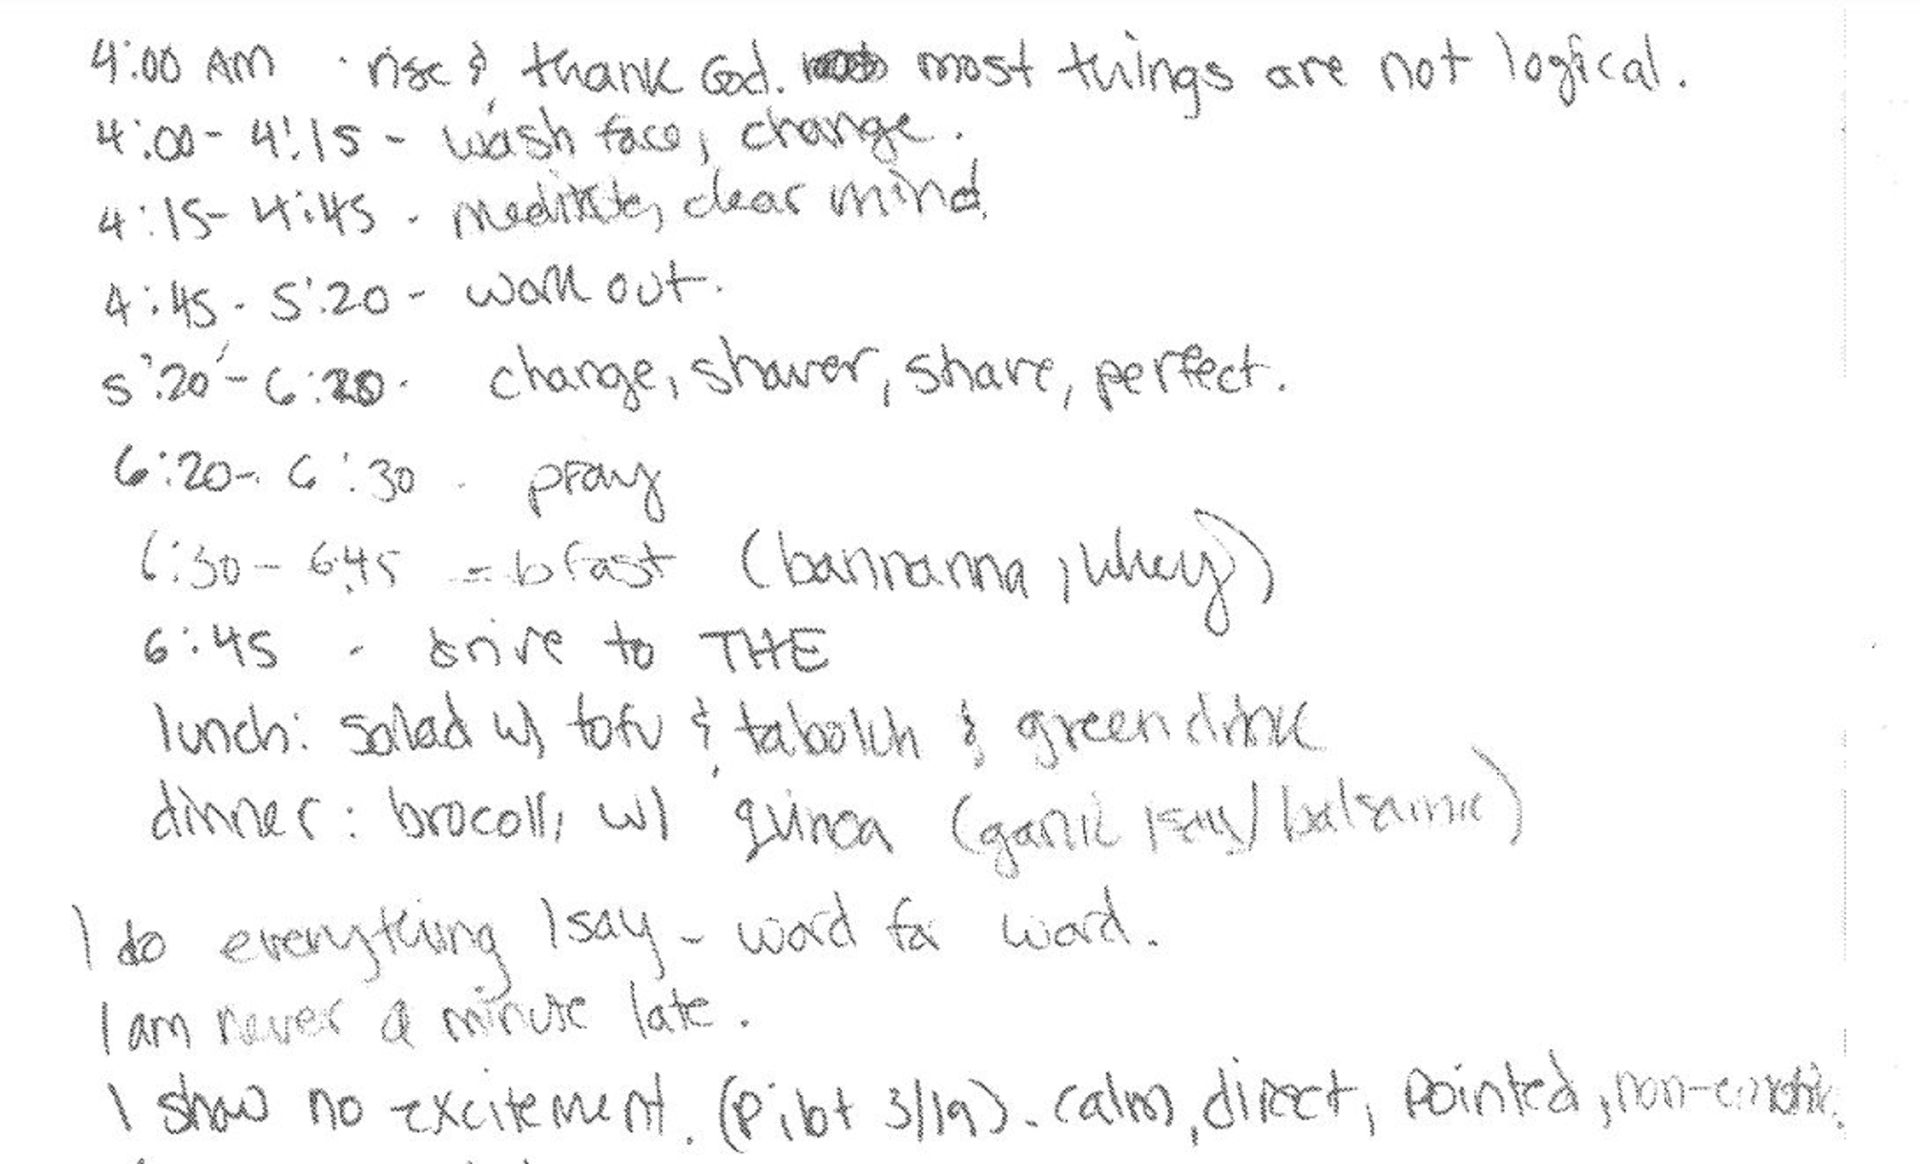 4:00 AM · rise & thank God. most things are not logical.
4:00 - 4:15 - wash face, change.
4:15 - 4:45 - meditate, clear mind.
4:45 - 5:20 - work out.
5:20 - 6:20 - change, shower, shave, perfect.
6:20 - 6:30 - pray
6:30 - 6:45 - bfast (bannanna, whey)
6:45 - drive to THE
lunch: salad w/ tofu & & green drink
dinner: brocolli w/ quinoa (garlic / balsamic)
I do everything I say - word for word.
I am never a minute late.
I show no excitement. (Pilot 3/19). calm, direct, pointed,